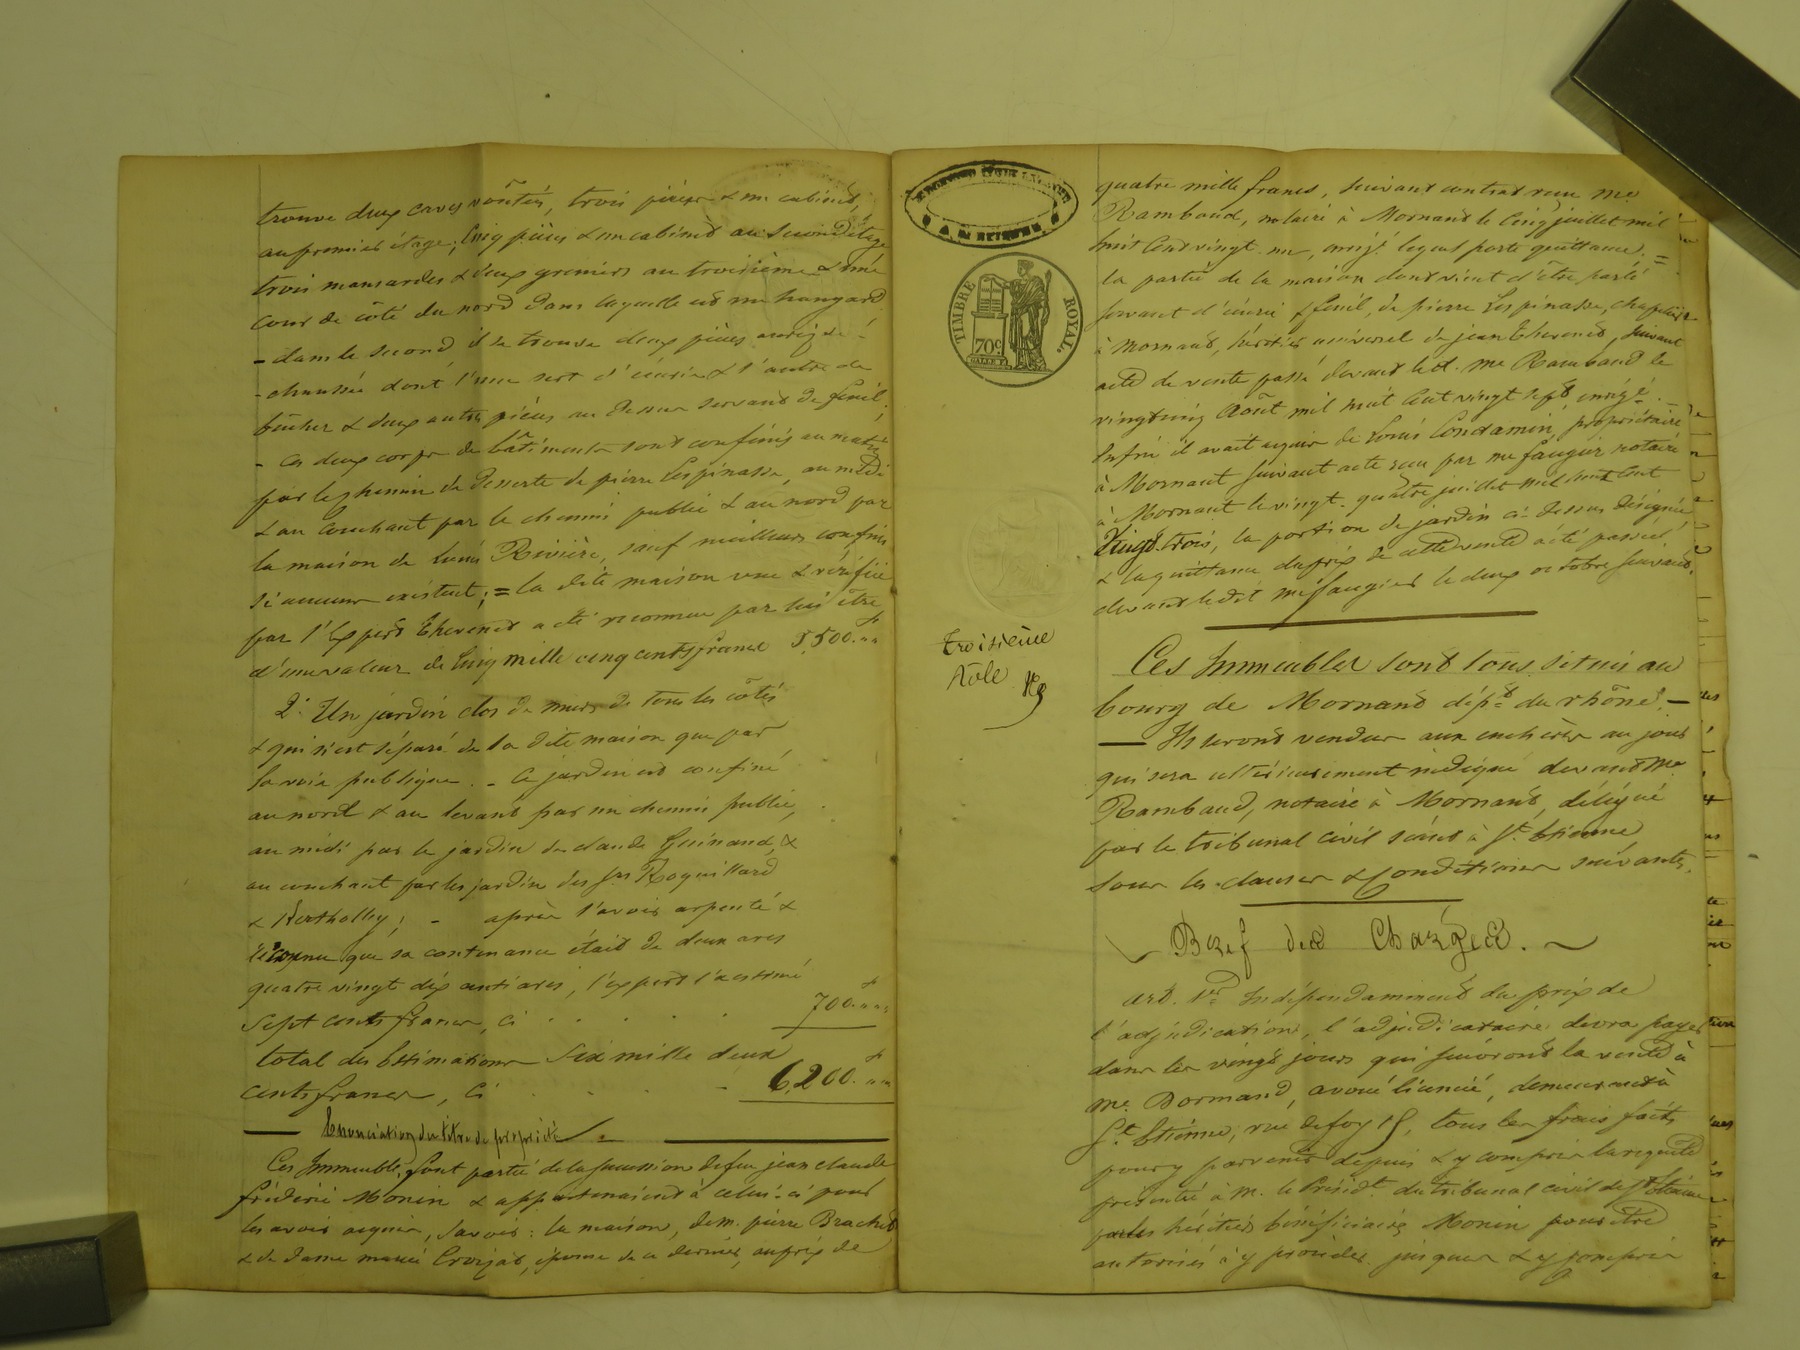 trouve deux caves voûtées, trois pièces & un cabinet,
au premier étage; Cinq pièces & un cabinet au second étage
trois mansardes & deux greniers au troisième & une
cour de côté du nord dans laquelle est un hangard
- dans le second, il se trouve deux pièces au rez de
- chaussée dont l'une sert d'écurie & l'autre de
bûcher & deux autres pièces au dessus servant de fenil;
- Ces deux corps de bâtiments sont confinés au matin
par le chemin de desserte de pierre Lespinasse, au midi
& au couchant par le chemin public & au nord par
la maison de Louis Rivière, sauf meilleurs confins
si aucuns existent; = la dite maison vue & vérifiée
par l'Expert Thevenet a été reconnue par lui être
d'une valeur de Cinq mille cinq cents francs 5,500.f
2° Un jardin clos de murs de tous les côtés
& qui n'est séparé de la dite maison que par
la voie publique. - Ce jardin est confiné
au nord & au levant par un chemin public,
au midi par le jardin de claude Guinand, &
au couchant par les jardins des Srs Roquillard
& Bertholley; - après l'avoir arpenté &
reconnu que sa contenance était de deux ares
quatre vingt dix centiares, l'expert l'a estimé
Sept cents francs, ci . . . . . 700.f
total des Estimations Six mille deux
cents francs, Ci . . . 6,200.f
Enonciation du titre de propriété
Ces Immeubles font partie de la succession de feu jean claude
fréderic Monin & appartenaient à celui-ci pour
les avoir acquis, savoir: la maison, de m. pierre Brachet
& de Dame marie Croizat, épouse de ce dernier, au prix de
TIMBRE ROYAL.
70c
troisième
Rôle
quatre mille francs, suivant contrat reçu Me
Rambaud, notaire à Mornant le Cinq juillet mil
huit Cent vingt-un, enregé. lequel porte quittance. =
la partie de la maison dont vient d'être parlé
servant d'écurie & fenil, de pierre Lespinasse, chapelier
à Mornant, héritier universel de jean thevenet, suivant
acte de vente passé devant ledt. me Rambaud le
vingt cinq Août mil huit cent vingt sept enregé.
Enfin il avait acquis de Louis Condamin, propriétaire
à Mornant suivant acte reçu par me faugier notaire
à Mornant le vingt-quatre juillet mil huit Cent
Vingt-trois, la portion de jardin ci-dessus désignée
& la quittance du prix de cette vente a été passée
devant ledit me faugier le deux octobre suivant.
Ces Immeubles sont tous situés au
bourg de Mornant dépt. du rhône. -
- Ils seront vendus aux enchères au jour
qui sera ultérieurement indiqué devant Me
Rambaud, notaire à Mornant, délégué
par le tribunal civil séant à St. Etienne
sous les clauses & Conditions suivantes.
Bref des Charges.
Art. 1er Indépendamment du prix de
l'adjudication, l'adjudicataire devra payer
dans les vingt jours qui suivront la vente à
Me. Dormand, avoué licencié, demeurant à
St. Etienne, rue de foy 15, tous les frais faits
pour y parvenir depuis & y compris la requête
présentée à M. le Présidt. du tribunal civil de St Etienne
par les héritiers bénéficiaires Monin pour être
autorisés à y procéder jusques & y compris